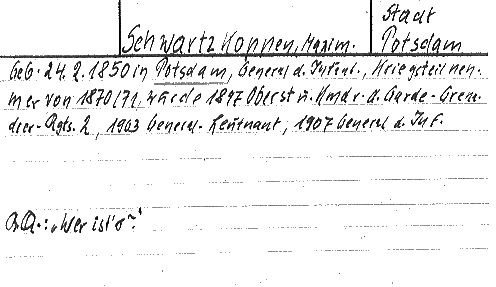 Schwartzkoppen, Maxim.
Stadt
Potsdam
Geb. 24.2.1850 in Potsdam, General d. Infant., Kriegsteilneh-
mer von 1870/71, wurde 1897 Oberst u. Kmdr. d. Garde-Grena-
dier-Rgts. 2, 1903 General-Leutnant, 1907 General d. Inf.
"Wer ist's?"